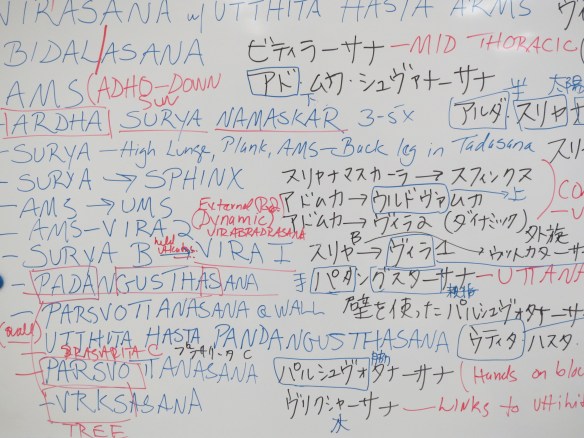 VIRASANA w/ UTTHITA HASTA ARMS
BIDALASANA ビティラーサナ — MID THORACIC (
AMS (ADHO-DOWN アド ムカ・シュヴァナーサナ
下 半 太陽
ARDHA SURYA NAMASKAR 3-5x アルダ スリヤ
- SURYA - High Lunge, Plank, AMS - Back leg in Tadasana
- SURYA → SPHINX スリヤナマスカーラ → スフィンクス
- AMS → UMS アドムカ → ウルドヴァムカ → 上
External (Dynamic)
- AMS-VIRA 2 VIRABADRASANA アドムカ → ヴィラ2 (ダイナミック)
- SURYA B VIRA I スリヤB → ヴィラ1 → ウットカターサ
外旋
- PADANGUSTHASANA 手 パダングスターサナ — UTTANA
(wall)
- PARSVOTTANASANA @ WALL 壁を使ったパルシュヴォタナーサ
- UTTHITA HASTA PANDANGUSTHASANA ウティタ ハスタ
PRASARITA C プラサリータ C
- PARSVOTTANASANA パルシュヴォタナーサナ (Hands on bloc
- VRKSASANA ヴリクシャーサナ — LINKS to uttihit
TREE 木